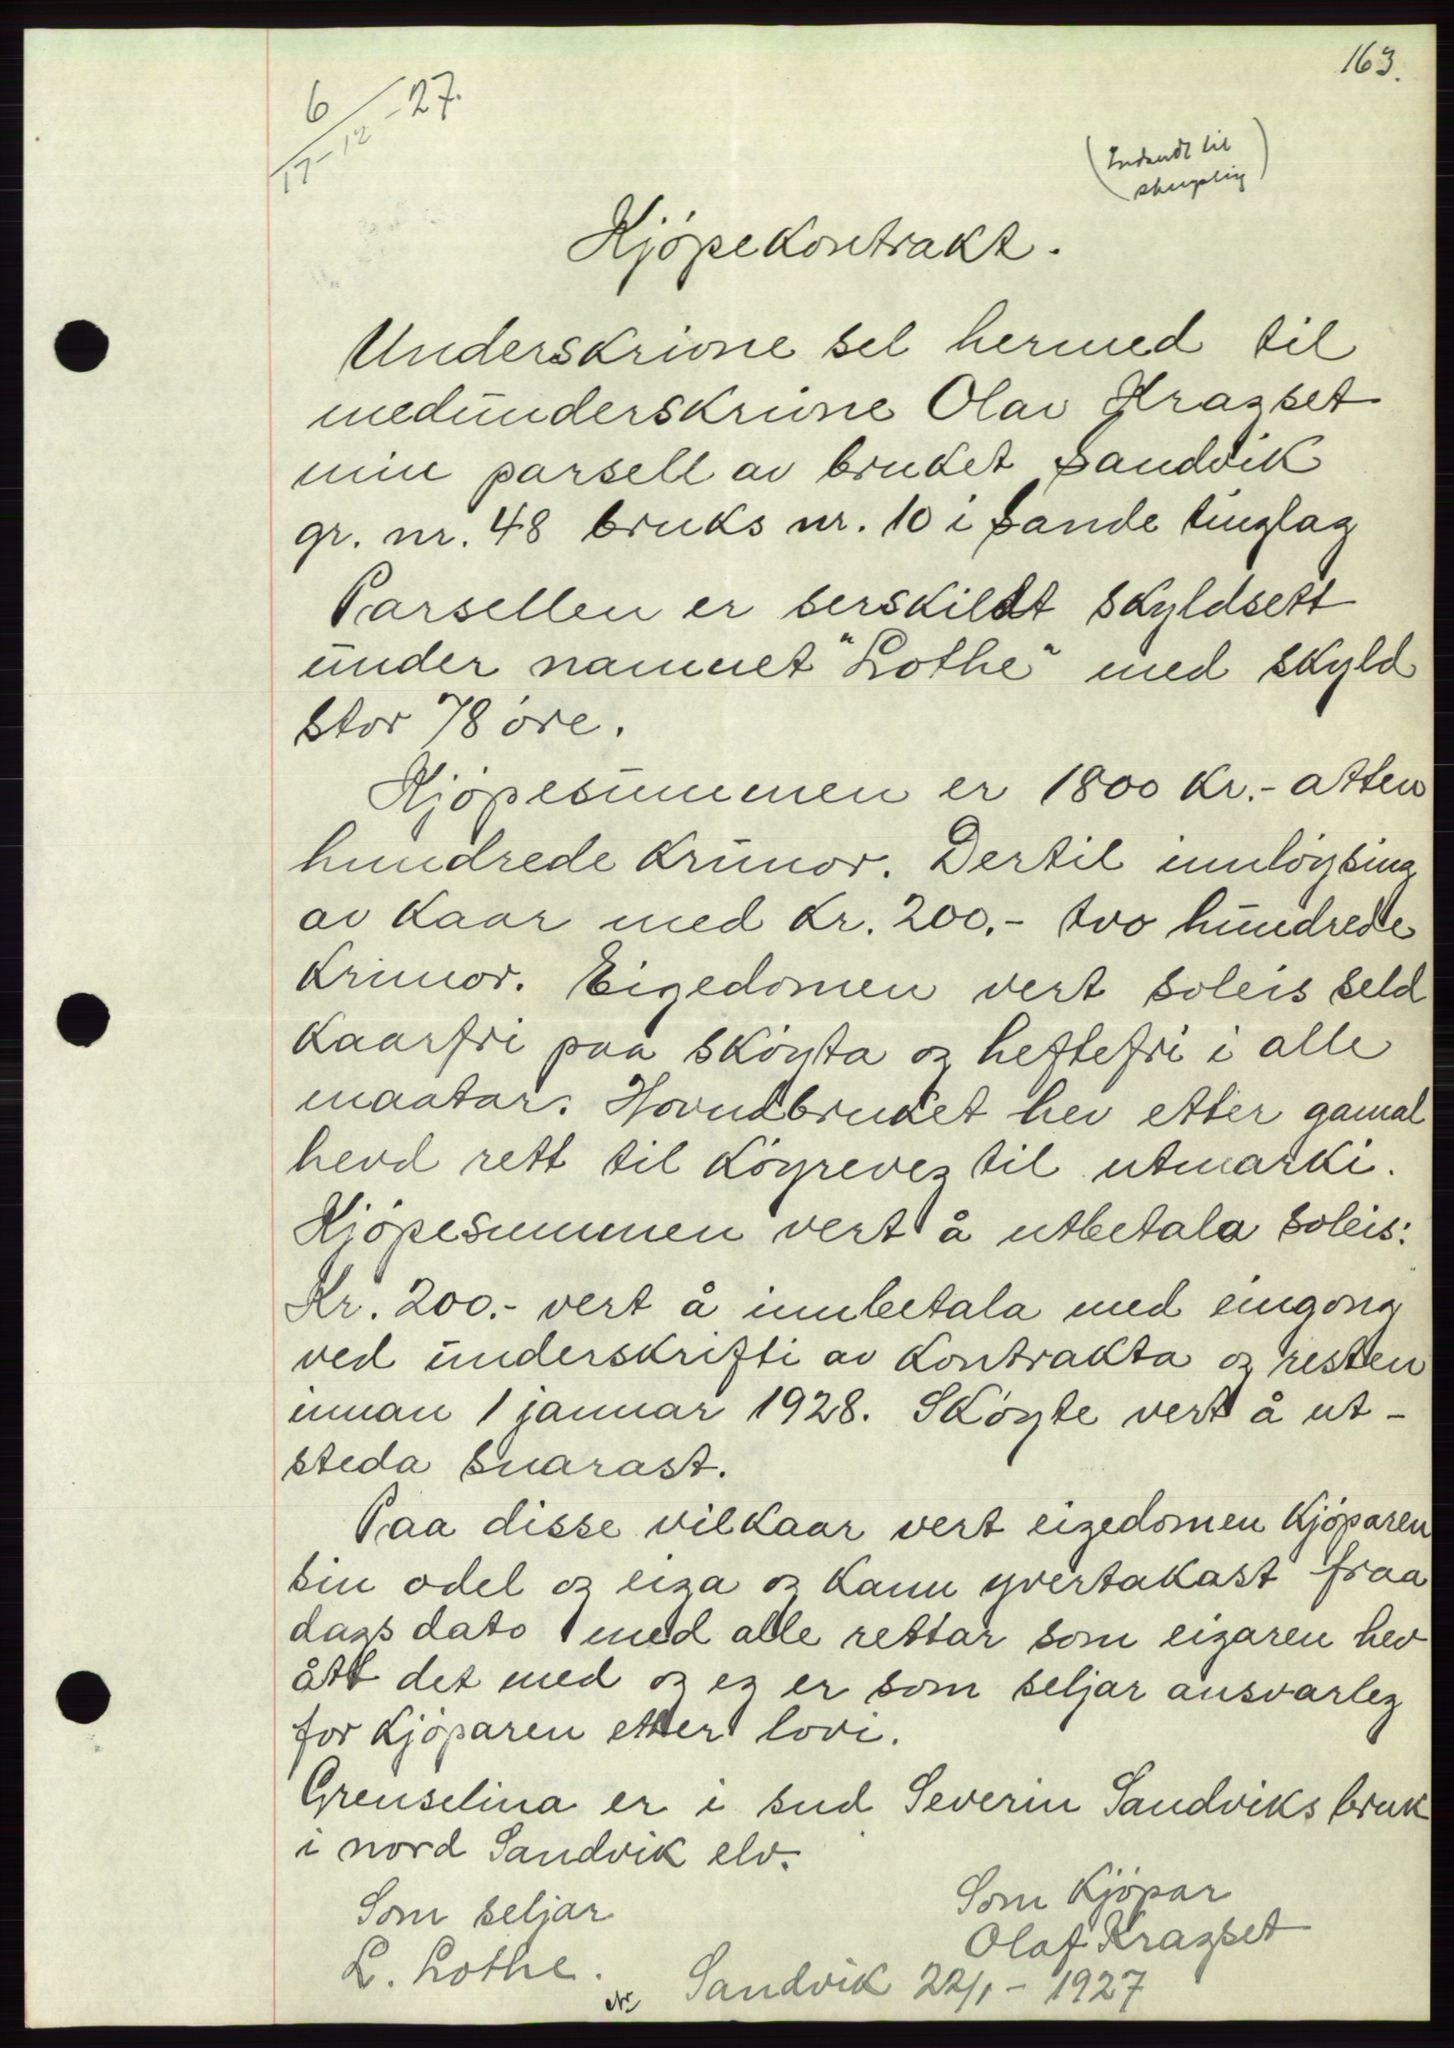 163.
6/17-12 -27.
(Indsendt til
stempling)
Kjöpekontrakt.
Underskrivne sel hermed til
medunderskrivne Olav Kragset
min parsell av bruket Sandvik
gr. nr. 48 bruks nr. 10 i Sande tinglag
Parsellen er serskildt skyldsett
under namnet "Lothe" med skyld
stor 78 öre.
Kjöpesummen er 1800 Kr.- atten
hundrede krunor. Dertil innlöysing
av kaar med Kr. 200.- tvo hundrede
krunor. Eigedomen vert soleis seld
kaarfri paa sköyta og heftefri i alle
maatar. Hovudbruket hev etter gamal
hevd rett til köyreveg til utmarki.
Kjöpesummen vert å utbetala soleis:
Kr. 200.- vert å innbetala med eingong
ved underskrifti av kontrakta og resten
innan 1 januar 1928. Sköyte vert å ut-
steda snarast.
Paa disse vilkaar vert eigedomen kjöparen
sin odel og eiga og kann yvertakast fraa
dags dato med alle rettar som eigaren hev
ått det med og eg er som seljar ansvarleg
for kjöparen etter lovi.
Grenselina er i sud Severin Sandviks bruk
i nord Sandvik elv.
Som seljar
L. Lothe.
Som kjöpar
Olaf Kragset
Sandvik 22/1 - 1927